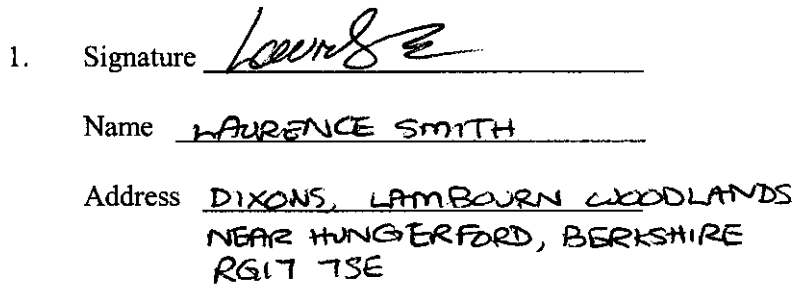 1. Signature
Name LAURENCE SMITH
Address DIXONS, LAMBOURN WOODLANDS
NEAR HUNGERFORD, BERKSHIRE
RG17 7SE